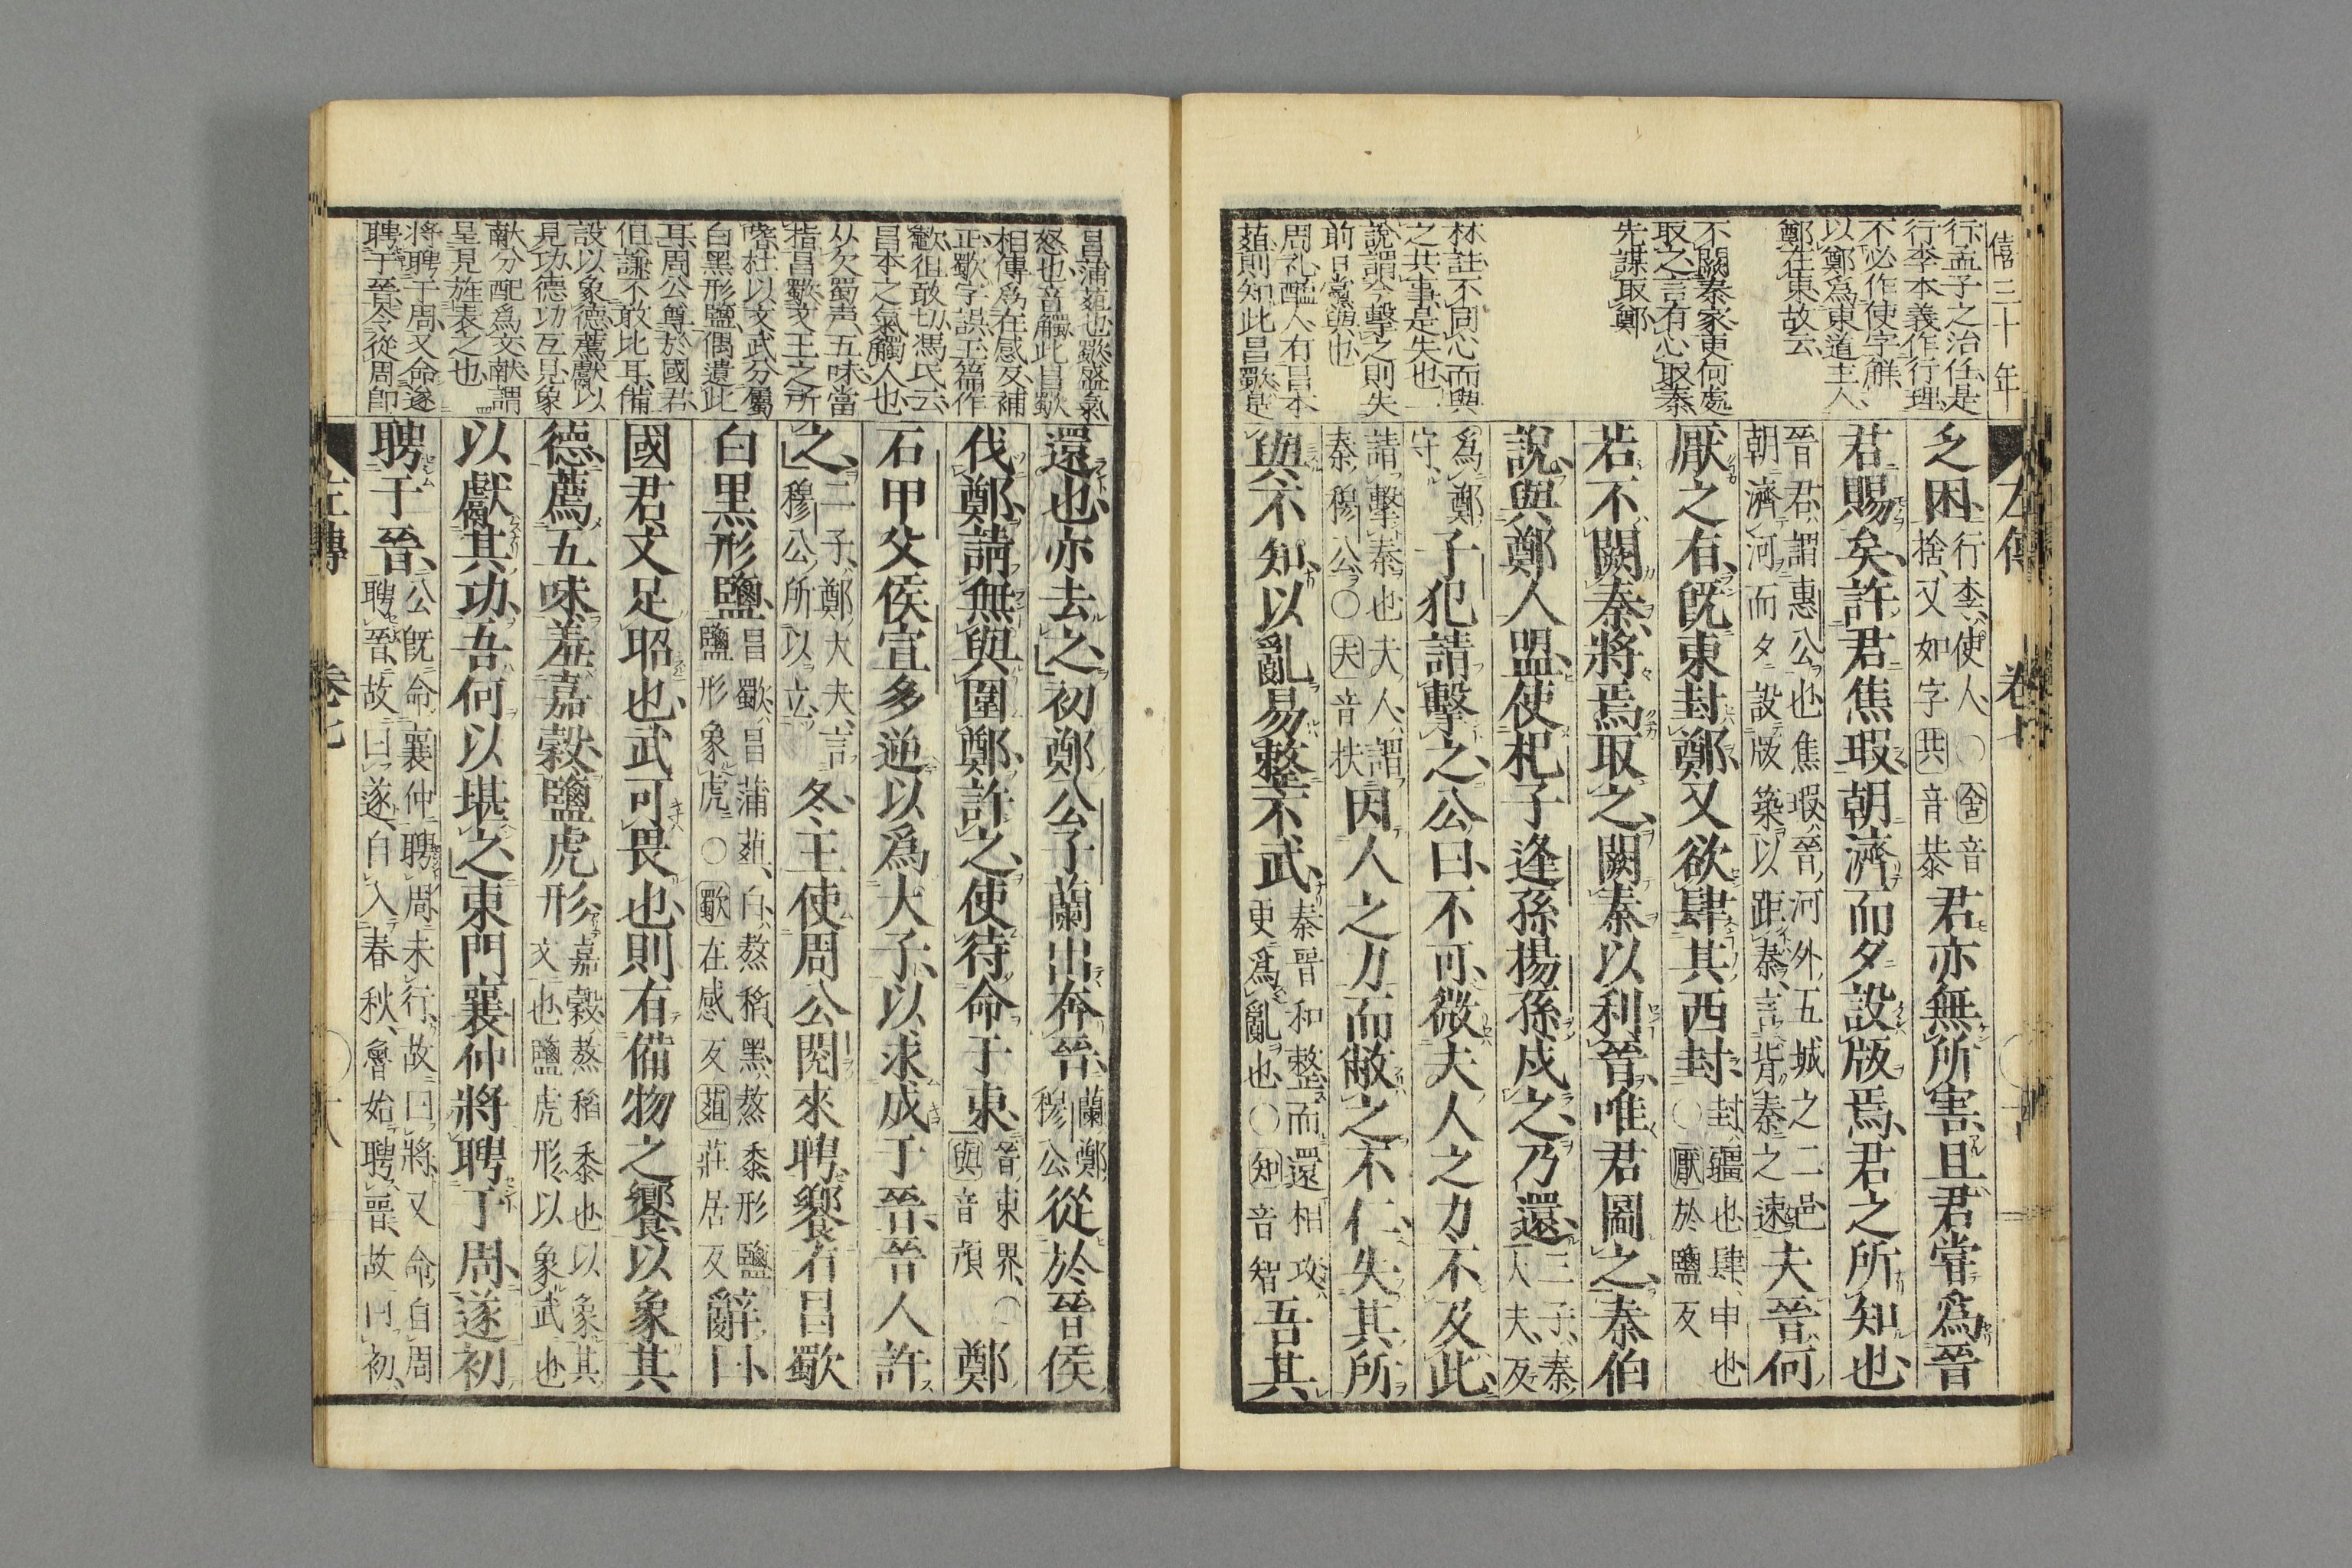 僖三十年
行孟子之治任是
行李本義作行理
不必作使字解
以鄭爲東道主人
鄭在東故云
不闕秦家更何處
取之言有心取秦
先謀取鄭
林註不同心而與
之共事是失也一
說謂今擊之則失
前日黨與也
周礼醢人有昌本
葅則知此昌歜是
乏困行李使人○舍音
捨又如字共音恭君亦無所害且君嘗爲晉
君賜矣許君焦瑕朝濟而夕設版焉君之所知也
晉君謂惠公也焦瑕晉河外五城之二邑
朝濟河而夕設版築以距秦言背秦之速夫晉何
厭之有旣東封鄭又欲肆其西封封疆也肆申也
○厭於鹽反
若不闕秦將焉取之闕秦以利晉唯君圖之秦伯
說與鄭人盟使杞子逢孫揚孫戍之乃還三子秦
大夫反
爲鄭
守子犯請擊之公曰不可微夫人之力不及此
請擊秦也夫人謂
秦穆公○夫音扶因人之力而敝之不仁失其所
與不知以亂易整不武秦晉和整而還相攻
更爲亂也○知音智吾其
還也亦去之初鄭公子蘭出奔晉蘭鄭
穆公從於晉侯
伐鄭請無與圍鄭許之使待命于東晉東界○
與音預鄭
石甲父侯宣多逆以爲大子以求成于晉晉人許
之二子鄭大夫言
穆公所以立冬王使周公閱來聘饗有昌歜
白黑形鹽昌歜昌蒲葅白熬稻黑熬黍形鹽
鹽形象虎○歜在感反葅莊居反辭曰
國君文足昭也武可畏也則有備物之饗以象其
德薦五味羞嘉穀鹽虎形嘉穀熬稻黍也以象其
文也鹽虎形以象武也
以獻其功吾何以堪之東門襄仲將聘于周遂初
聘于晉公旣命襄仲聘周未行故曰將又命自周
聘晉故曰遂自入春秋魯始聘晉故曰初
昌蒲葅也歜盛氣
怒也音觸此昌歜
相傳爲在感反補
正歜字誤玉篇作
歜徂敢切馮氏云
昌本之氣觸人也
从欠蜀声五味當
指昌歜文王之所
嗜杜以文武分屬
白黑形鹽偶遺此
耳周公尊於國君
但謙不敢比耳備
設以象德薦獻以
見功德功互見象
献分配爲文献謂
呈見旌表之也
將聘于周又命遂
聘于晉令從周卽
左傳 卷七 十八